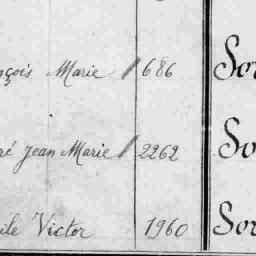 nçois Marie / 686 Sor
ré Jean Marie / 2262 So
ile Victor 1960 Sor